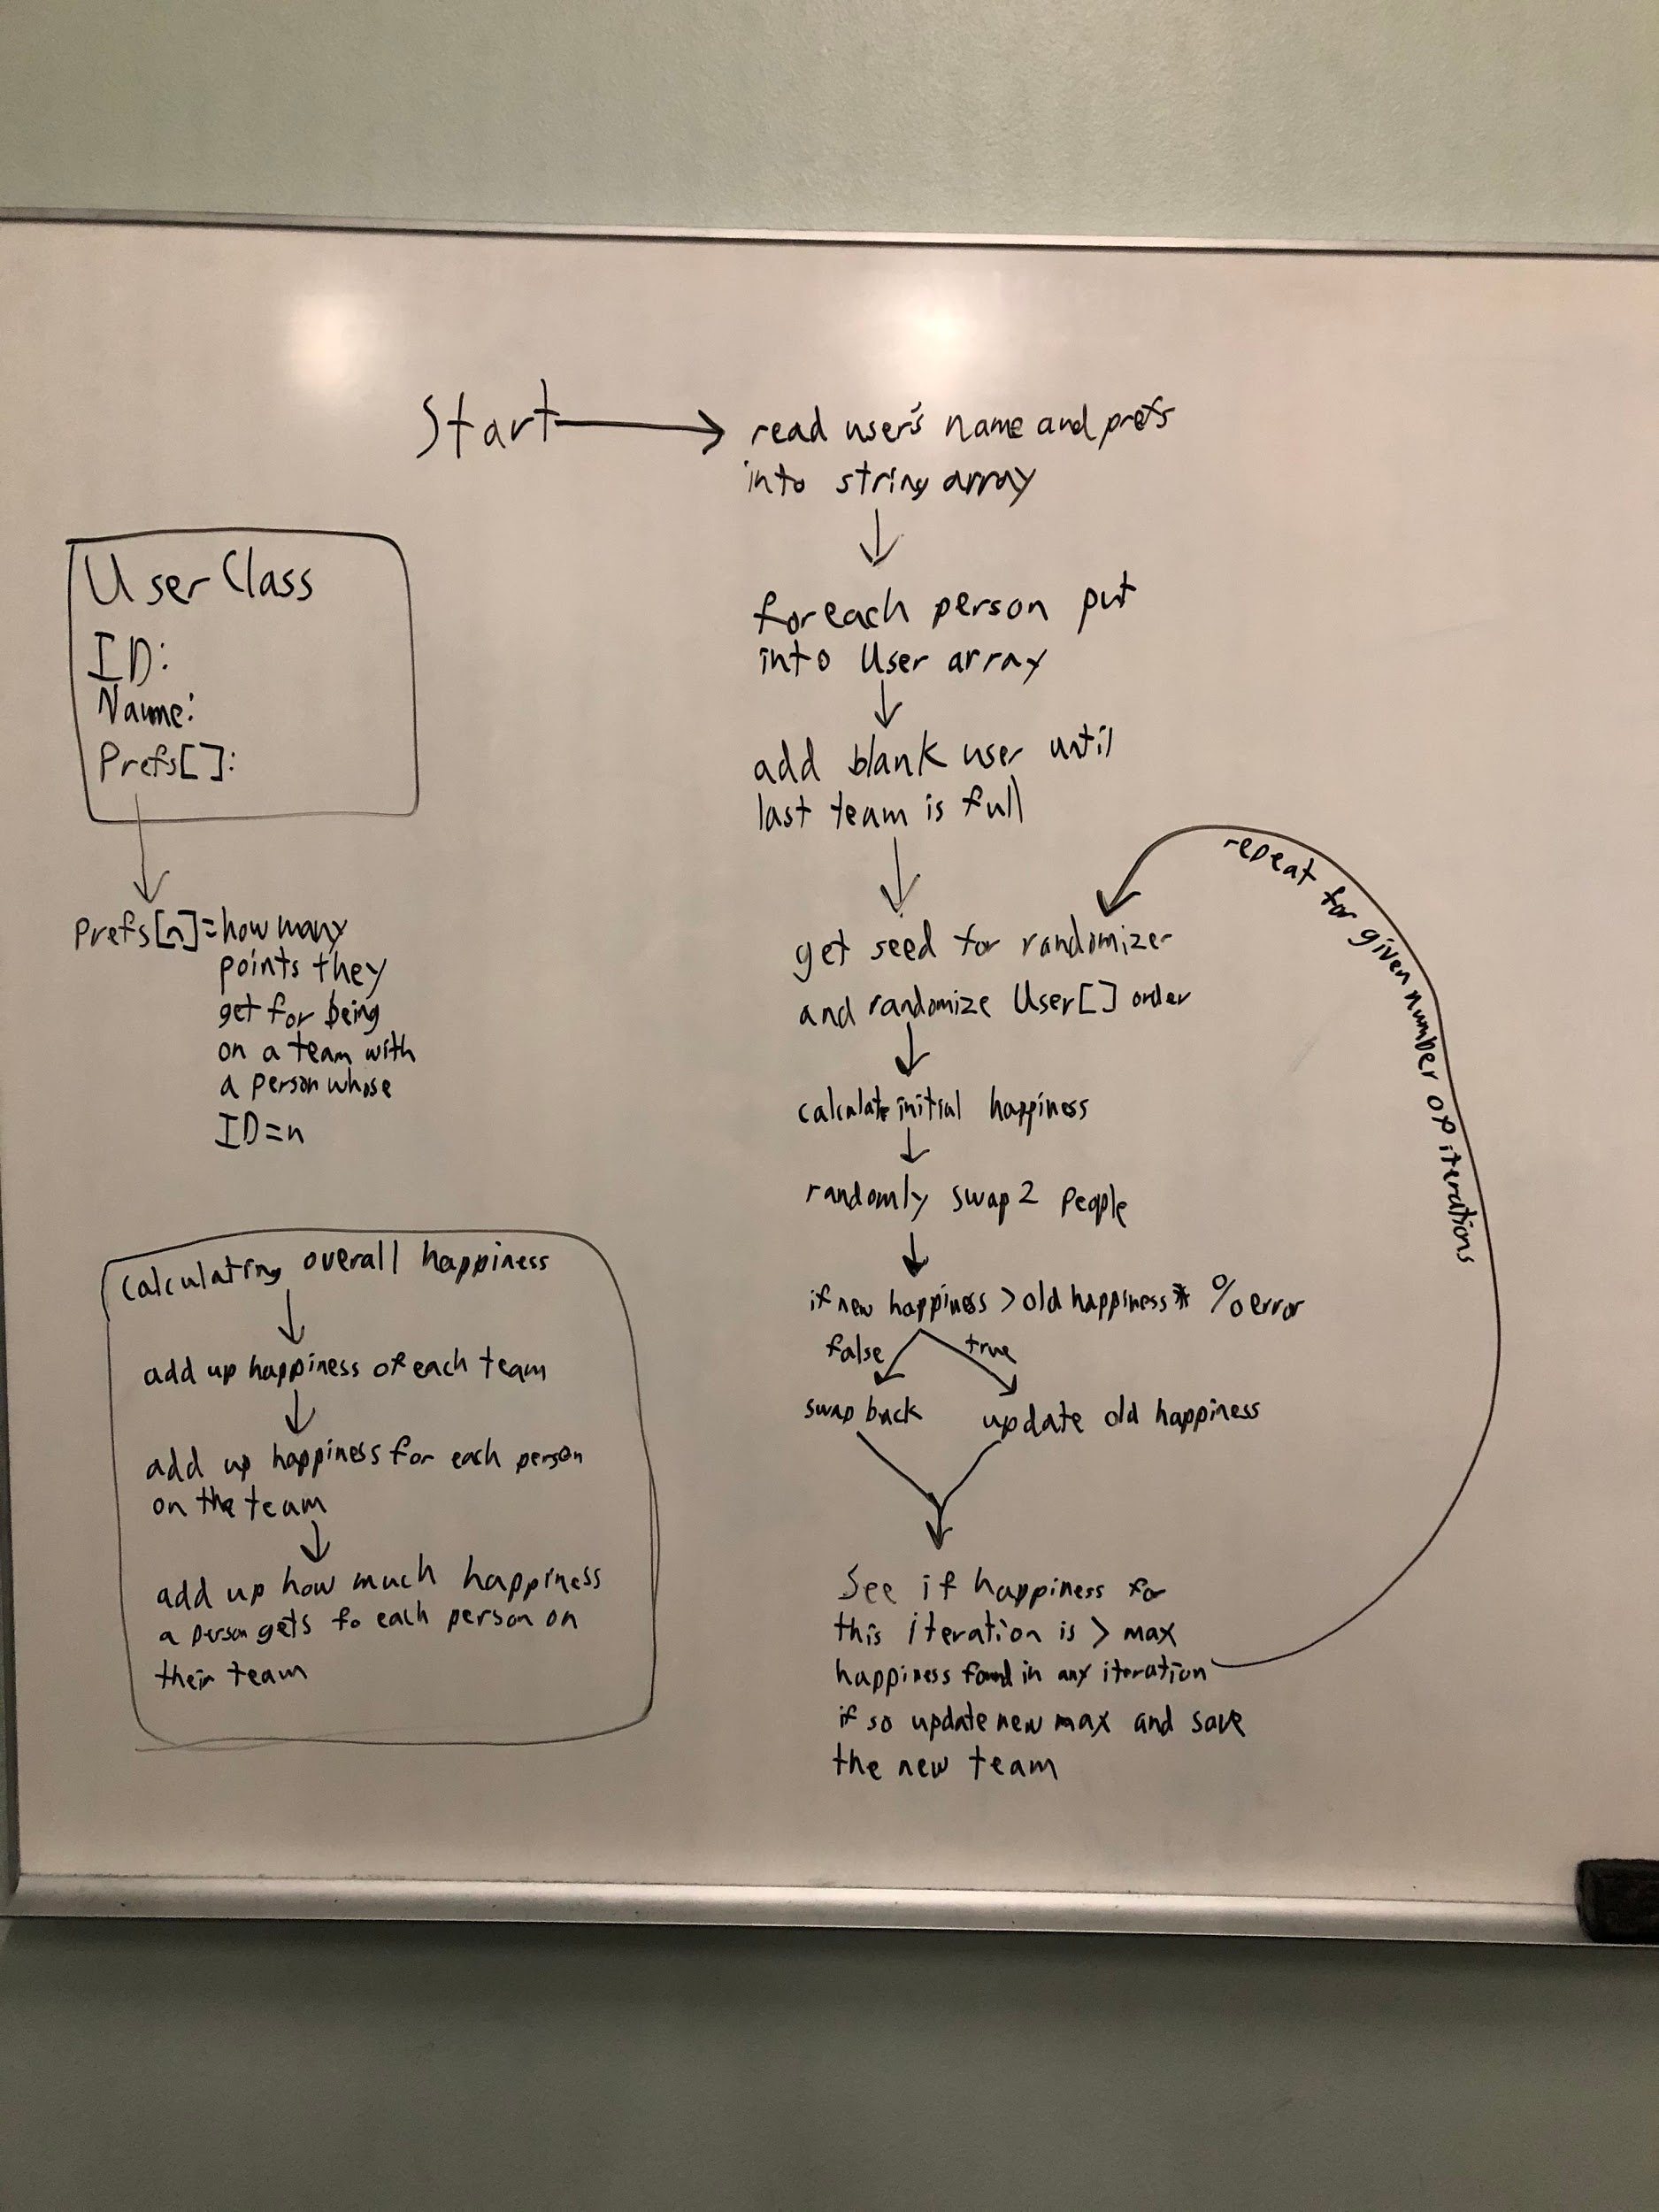 Start
read user's name and prefs
into string array
foreach person put
into User array
add blank user until
last team is full
get seed for randomizer
and randomize User[] order
calculate initial happiness
randomly swap 2 people
if new happiness > old happiness * % error
false true
swap back update old happiness
See if happiness for
this iteration is > max
happiness found in any iteration
if so update new max and save
the new team
repeat for given number of iterations
User Class
ID:
Name:
Prefs[]:
Prefs[n]=how many
points they
get for being
on a team with
a person whose
ID=n
Calculating overall happiness
add up happiness of each team
add up happiness for each person
on the team
add up how much happiness
a person gets fo each person on
their team